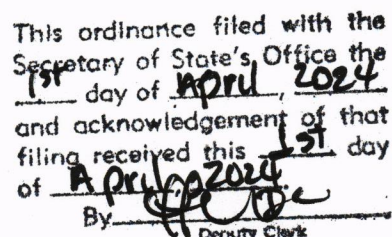 This ordinance filed with the
Secretary of State's Office the
1st day of April, 2024
and acknowledgement of that
filing received this 1st day
of April, 2024.
By
Deputy Clerk